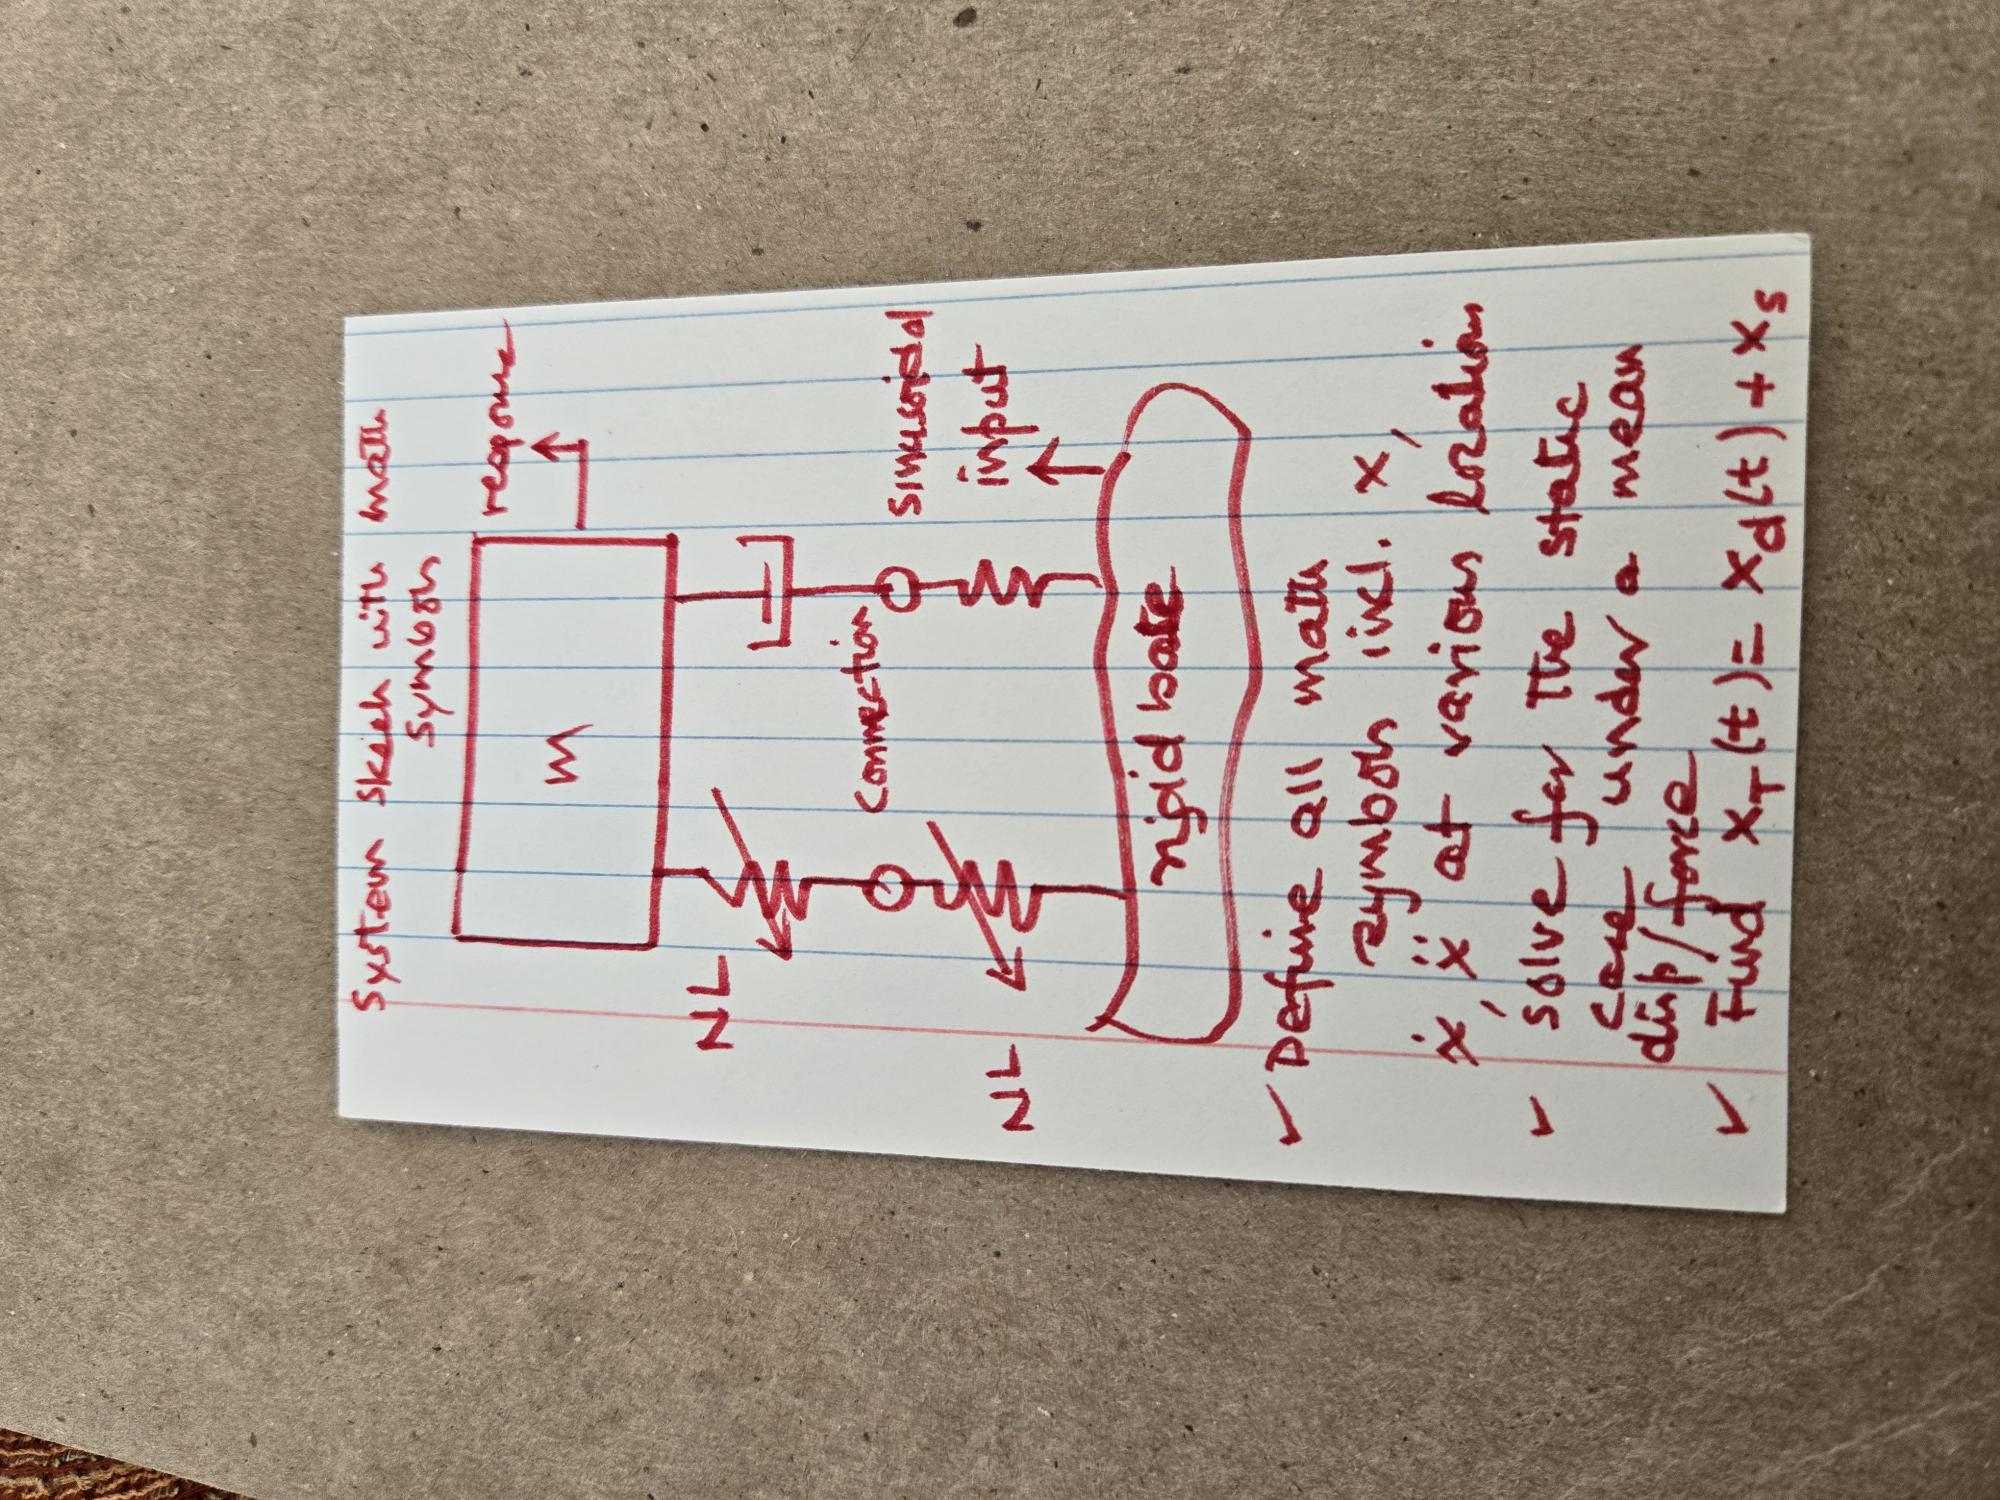 System Skech with math
Symbols
m
response
NL
Connection
sinusoidal
input
NL
rigid base
✓ Define all math
symbols incl. x,
ẋ, ẍ at various locations
✓ solve for the static
case under a mean
disp/force
✓ Find x_T(t) = x_d(t) + x_s